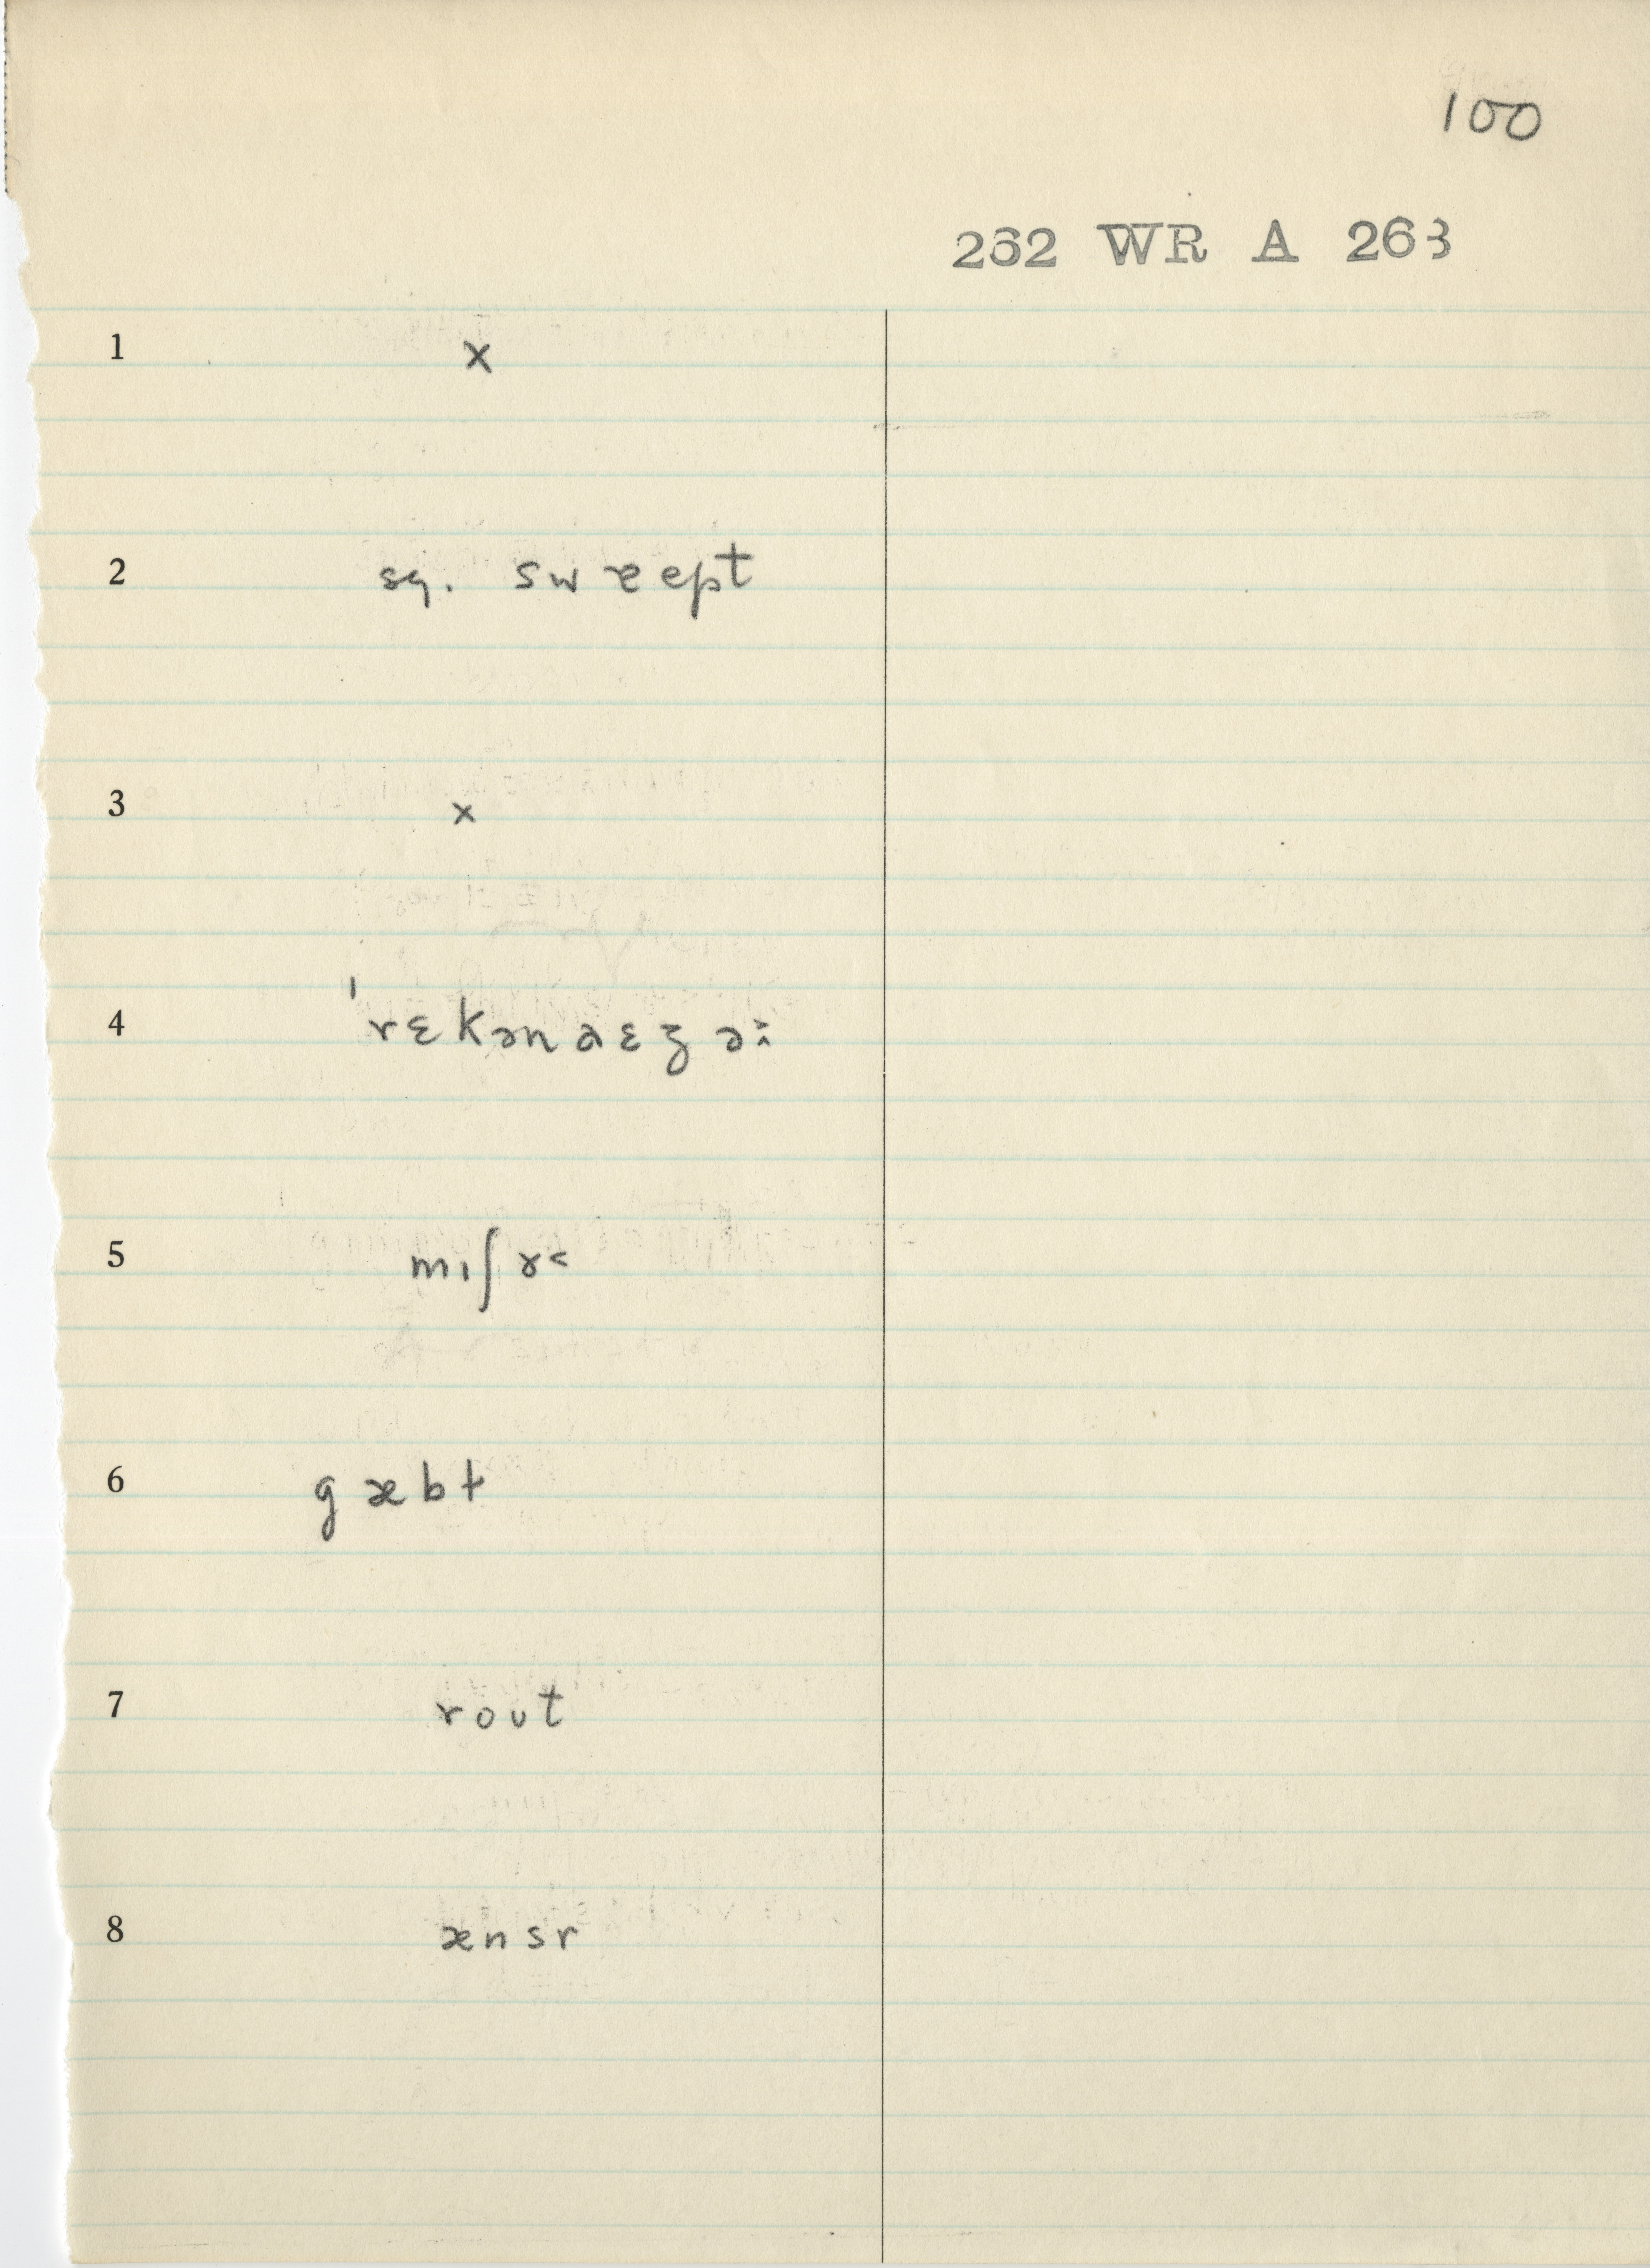 100
262 WR A 263
1 x
2 sq. swæept
3 x
4 ˈrɛkənaɛzə
5 mıʃɤ˂
6 gæbt
7 rout
8 ænsr